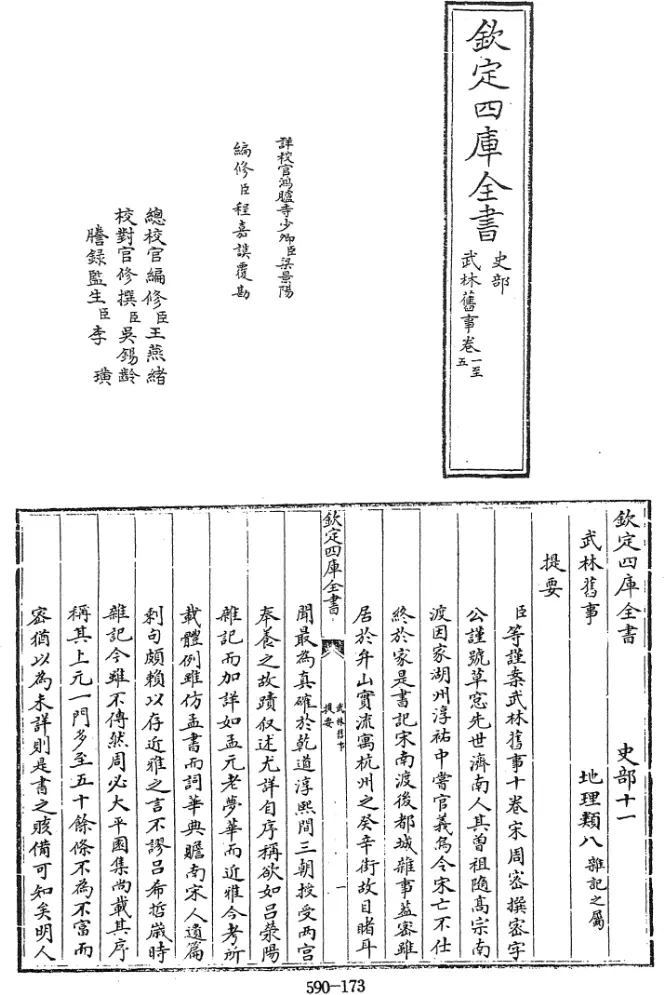 欽定四庫全書
史部
武林舊事卷一至五
詳校官鴻臚寺少卿臣梁景陽
編修臣程嘉謨覆勘
總校官編修臣王燕緒
校對官修撰臣吳錫齡
謄錄監生臣李璜
欽定四庫全書
史部十一
武林舊事
地理類八雜記之屬
提要
臣等謹案武林舊事十卷宋周密撰密字
公謹號草窓先世濟南人其曾祖隨高宗南
渡因家湖州淳祐中嘗官義烏令宋亡不仕
終於家是書記宋南渡後都城雜事葢密雖
居於弁山實流寓杭州之癸辛街故目睹耳
欽定四庫全書
武林舊事
提要
一
聞最為真確於乾道淳熙間三朝授受兩宮
奉養之故蹟叙述尤詳自序稱欲如呂滎陽
雜記而加詳如孟元老夢華而近雅今考所
載體例雖仿孟書而詞華典贍南宋人遺篇
剩句頗賴以存近雅之言不謬呂希哲歲時
雜記今雖不傳然周必大平園集尚載其序
稱其上元一門多至五十餘條不為不富而
密猶以為未詳則是書之賅備可知矣明人
590-173